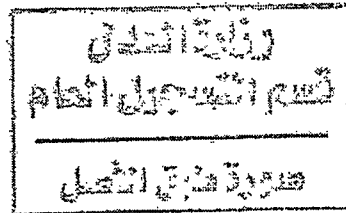 وزارة العدل
قسم التسجيل العام
صورة طبق الأصل